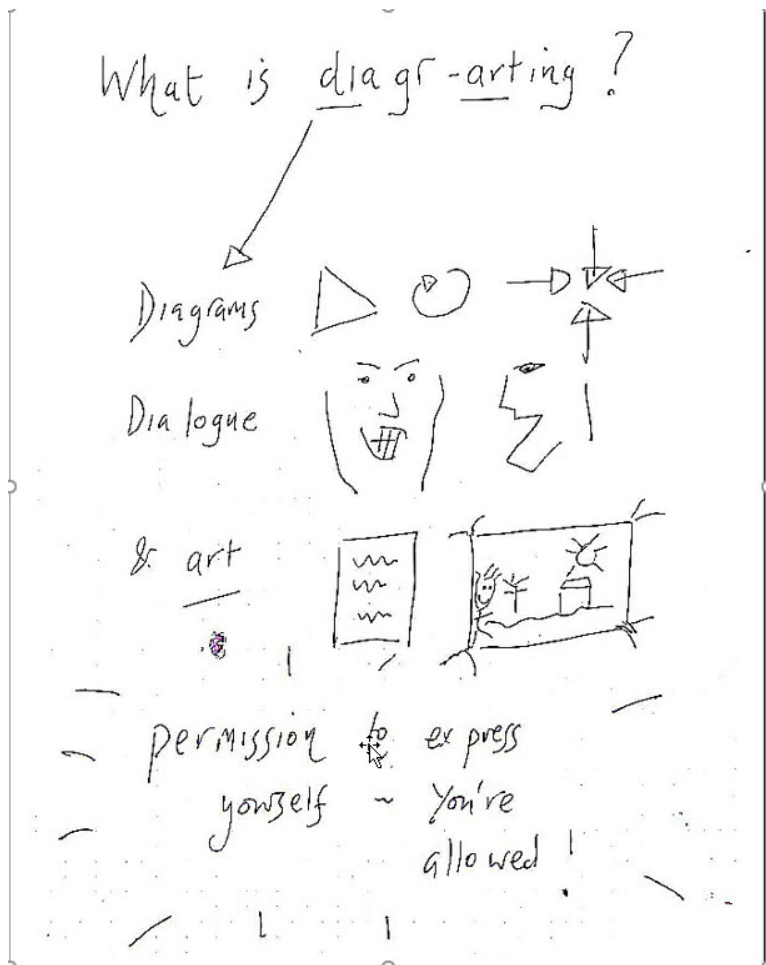 What is diagr-arting?
Diagrams
Dialogue
& art
permission to express
yourself ~ You're
allowed!